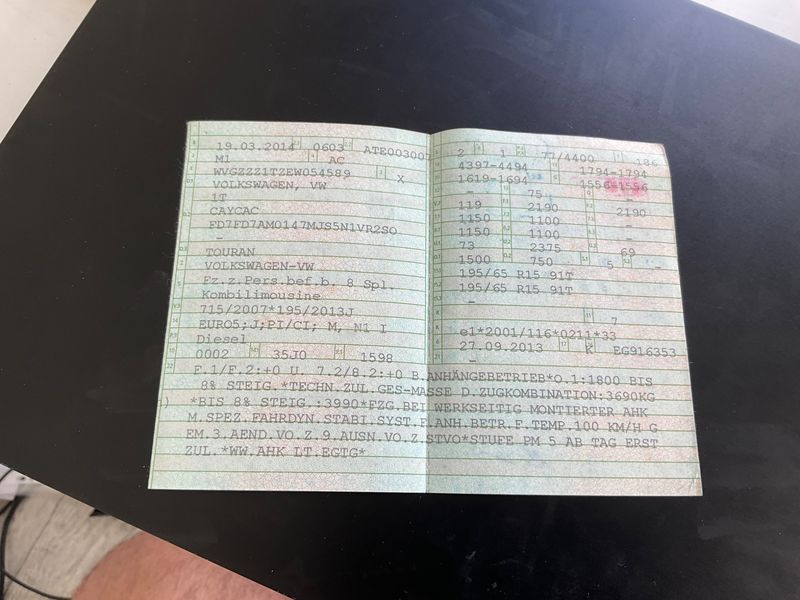 19.03.2014 0603 ATE003007
M1 AC
WVGZZZ1TZEW054589 X
VOLKSWAGEN, VW
1T
CAYCAC
FD7FD7AM0147MJS5N1VR2SO
-
TOURAN
VOLKSWAGEN-VW
Fz.z.Pers.bef.b. 8 Spl.
Kombilimousine
715/2007*195/2013J
EURO5;J;PI/CI; M, N1 I
Diesel
0002 35J0 1598
2 1 77/4400 186
4397-4494 1794-1794
1619-1694 1556-1556
- 75 -
119 2190 2190
1150 1100 -
1150 1100 -
73 2375 69
1500 750 5 -
195/65 R15 91T
195/65 R15 91T
-
7
e1*2001/116*0211*33
27.09.2013 K EG916353
-
F.1/F.2:+0 U. 7.2/8.2:+0 B.ANHÄNGEBETRIEB*O.1:1800 BIS
8% STEIG.*TECHN.ZUL.GES-MASSE D.ZUGKOMBINATION:3690KG
*BIS 8% STEIG.:3990*FZG.BEI WERKSEITIG MONTIERTER AHK
M.SPEZ.FAHRDYN.STABI.SYST.F.ANH.BETR.F.TEMP.100 KM/H G
EM.3.AEND.VO.Z.9.AUSN.VO.Z.STVO*STUFE PM 5 AB TAG ERST
ZUL.*WW.AHK LT.EGTG*